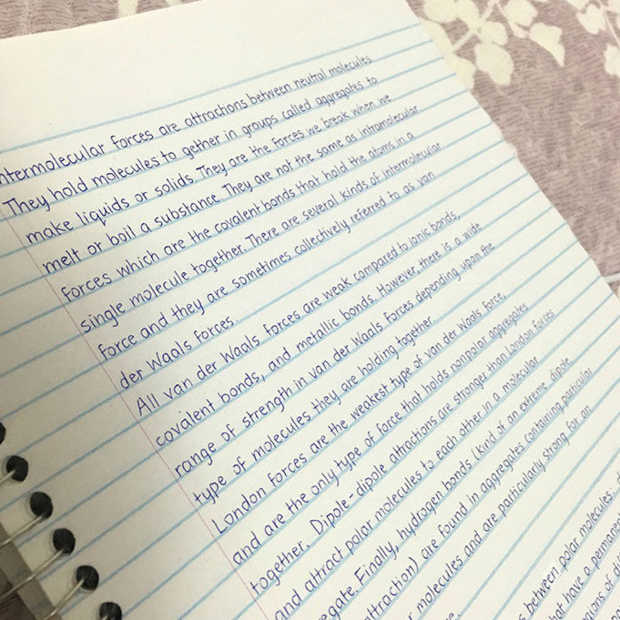 ntermolecular forces are attractions between neutral molecules
They hold molecules to gether in groups called aggregates to
make liquids or solids. They are the forces we break when we
melt or boil a substance. They are not the same as intramolecular
forces which are the covalent bonds that hold the atoms in a
single molecule together. There are several kinds of intermolecular
force and they are sometimes collectively referred to as van
der Waals forces.
All van der Waals forces are weak compared to ionic bonds,
covalent bonds, and metallic bonds. However, there is a wide
range of strength in van der Waals forces depending upon the
type of molecules they are holding together
London forces are the weakest type of van der Waals force,
and are the only type of force that holds nonpolar aggregates
together. Dipole-dipole attractions are stronger than London forces
and attract polar molecules to each other in a molecular
egate. Finally, hydrogen bonds (kind of an extreme dipole
attraction) are found in aggregates containing particular
r molecules and are particularly strong for an
s between polar molecules
hat have a permanen
ions of di